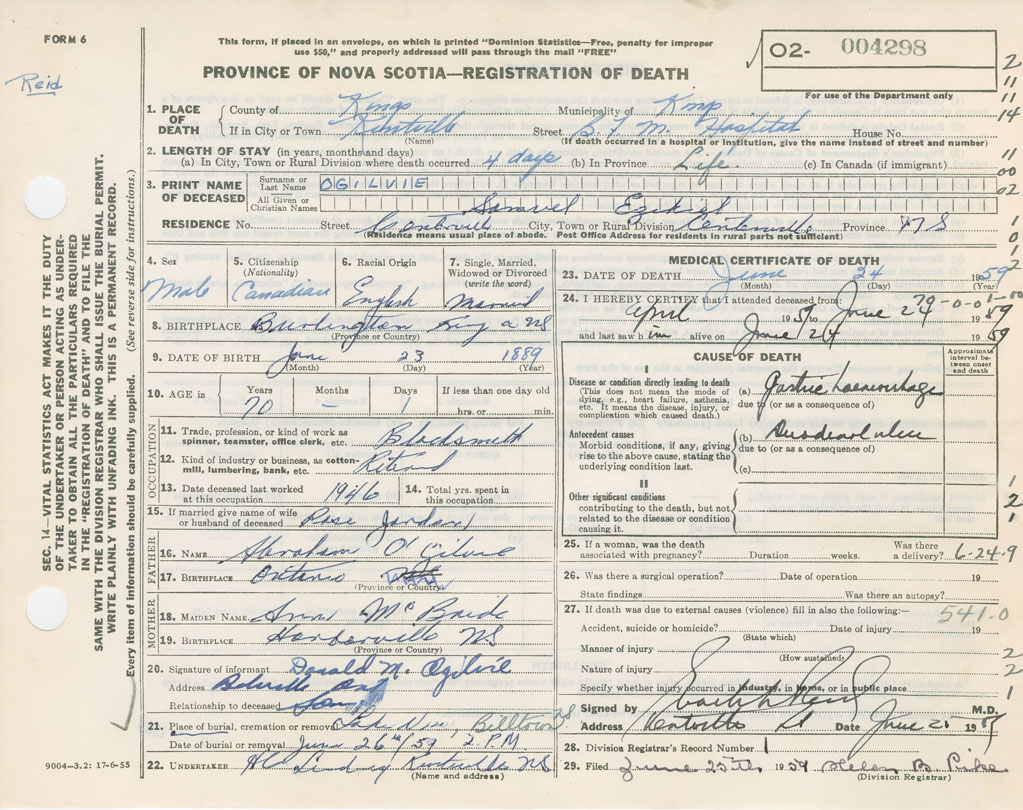 FORM 6
This form, if placed in an envelope, on which is printed "Dominion Statistics—Free, penalty for improper
use $50," and properly addressed will pass through the mail "FREE"
O2- 004298
PROVINCE OF NOVA SCOTIA—REGISTRATION OF DEATH
For use of the Department only
Reid
1. PLACE OF DEATH
County of Kings Municipality of Kings
If in City or Town Kentville Street B.F.M. Hospital House No.
(Name) (If death occurred in a hospital or institution, give the name instead of street and number)
2. LENGTH OF STAY (in years, months and days)
(a) In City, Town or Rural Division where death occurred 4 days (b) In Province Life (c) In Canada (if immigrant)
3. PRINT NAME OF DECEASED
Surname or Last Name OGILVIE
All Given or Christian Names Samuel Ezekiel
RESIDENCE No. Street Centreville City, Town or Rural Division Centreville Province NS
(Residence means usual place of abode. Post Office Address for residents in rural parts not sufficient)
4. Sex Male
5. Citizenship (Nationality) Canadian
6. Racial Origin English
7. Single, Married, Widowed or Divorced (write the word) Married
8. BIRTHPLACE Burlington King Co NS
(Province or Country)
9. DATE OF BIRTH June 23 1889
(Month) (Day) (Year)
10. AGE in Years 70 Months — Days 1 If less than one day old hrs. or min.
OCCUPATION
11. Trade, profession, or kind of work as spinner, teamster, office clerk, etc. Blacksmith
12. Kind of industry or business, as cotton-mill, lumbering, bank, etc. Retired
13. Date deceased last worked at this occupation 1946 14. Total yrs. spent in this occupation.
15. If married give name of wife or husband of deceased Rose Jordan
FATHER
16. NAME Abraham O'Gilvie
17. BIRTHPLACE Ontario
(Province or Country)
MOTHER
18. MAIDEN NAME Ann McBride
19. BIRTHPLACE Harborville NS
(Province or Country)
20. Signature of informant Donald M. Ogilvie
Address Belville Ont
Relationship to deceased Son
21. Place of burial, cremation or removal Lake View, Billtown NS
Date of burial or removal June 26th/59 2 P.M.
22. UNDERTAKER H C Lindsay Kentville NS
(Name and address)
MEDICAL CERTIFICATE OF DEATH
23. DATE OF DEATH June 24 1959
(Month) (Day) (Year)
24. I HEREBY CERTIFY that I attended deceased from: 79-0-01-00
April 1959 to June 24 1959
and last saw him alive on June 24 1959
CAUSE OF DEATH
Approximate interval between onset and death
I
Disease or condition directly leading to death
(This does not mean the mode of dying, e.g., heart failure, asthenia, etc. It means the disease, injury, or complication which caused death.)
(a) Gastric haemorrhage
due to (or as a consequence of)
Antecedent causes
Morbid conditions, if any, giving rise to the above cause, stating the underlying condition last.
(b) Duodenal ulcer
due to (or as a consequence of)
(c)
II
Other significant conditions
contributing to the death, but not related to the disease or condition causing it.
25. If a woman, was the death associated with pregnancy? Duration weeks. Was there a delivery? 6-24-9
26. Was there a surgical operation? Date of operation 19
State findings Was there an autopsy?
27. If death was due to external causes (violence) fill in also the following:— 541.0
Accident, suicide or homicide? Date of injury 19
(State which)
Manner of injury
(How sustained)
Nature of injury
Specify whether injury occurred in industry, in home, or in public place
Signed by M.D.
Address Kentville Date June 25 1959
28. Division Registrar's Record Number 1
29. Filed June 25th 1959 Helen B. Pirke
(Division Registrar)
SEC. 14—VITAL STATISTICS ACT MAKES IT THE DUTY
OF THE UNDERTAKER OR PERSON ACTING AS UNDER-
TAKER TO OBTAIN ALL THE PARTICULARS REQUIRED
IN THE "REGISTRATION OF DEATH" AND TO FILE THE
SAME WITH THE DIVISION REGISTRAR WHO SHALL ISSUE THE BURIAL PERMIT.
WRITE PLAINLY WITH UNFADING INK. THIS IS A PERMANENT RECORD.
Every item of information should be carefully supplied. (See reverse side for instructions.)
9004-3.2: 17-6-55
2
11
11
14
11
00
02
1
0
1
2
1
2
1
2
2
1